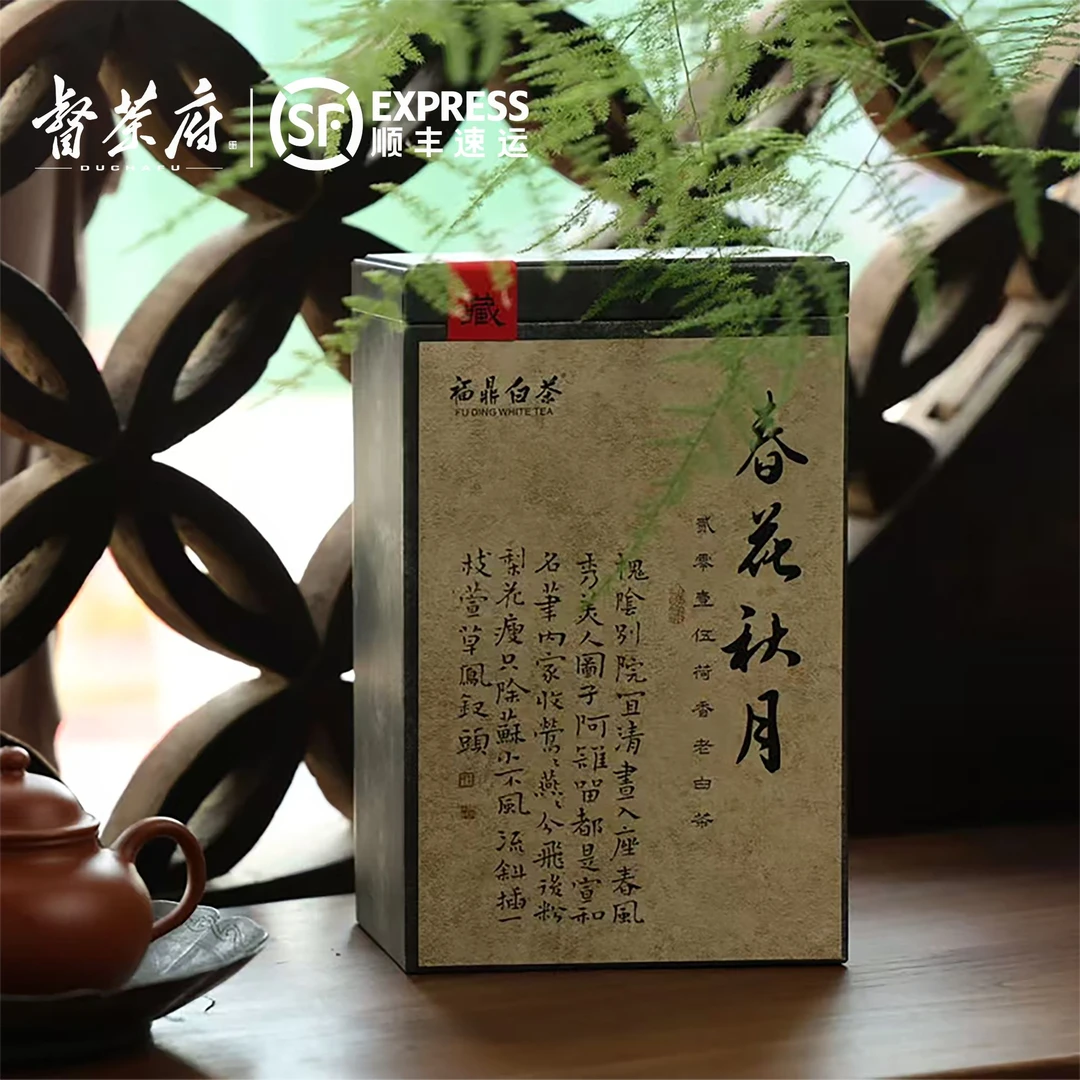 督茶府
DUCHAFU
SF EXPRESS
顺丰速运
藏
福鼎白茶
FU DING WHITE TEA
春花秋月
貳零壹伍荷香老白茶
槐陰別院宜清晝入座春風
秀美人圖子阿誰留都是宣和
名筆內家收鶯〻燕〻分飛後粉
梨花瘦只除蘇小不風流斜插一
枝萱草鳳釵頭